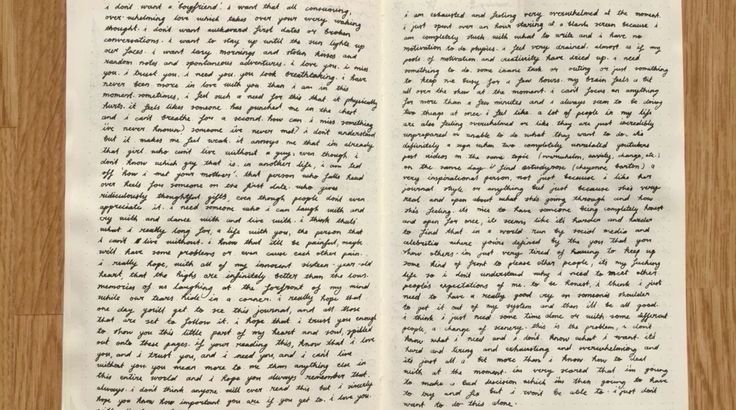 i don't want a 'boyfriend'. i want that all consuming,
over-whelming love which takes over your every waking
thought. i don't want awkward first dates or broken
conversations. i want to stay up until the sun lights up
our faces. i want lazy mornings and stolen kisses and
random notes and spontaneous adventures. i love you. i miss
you. i trust you. i need you. you look breathtaking. i have
never been more in love with you than i am in this
moment. sometimes, i feel such a need for this that it physically
hurts. it feels like someone has punched me in the chest
and i can't breathe for a second. how can i miss something
(i've never known) someone i've never met? i don't understand
but it makes me feel weak. it annoys me that i'm already
that girl who can't live without a guy, even though i
don't know which guy that is. in another life, i am ted
off 'how i met your mother'. that person who falls head
over heels for someone on the first date. who gives
ridiculously thoughtful gifts, even though people don't even
appreciate it. i need someone who i can laugh with and
cry with and dance with and live with. i think that's
what i really long for, a life with you, the person that
i can't live without. i know that it'll be painful, maybe
we'll have some problems or even cause each other pain.
i really hope, with all of my innocent sixteen-year-old
heart, that the highs are infinitely better than the lows.
memories of us laughing at the forefront of my mind
while our tears hide in a corner. i really hope that
one day you'll get to see this journal, and all those
that are set to follow it. i hope that i trust you enough
to show you this little part of my heart and soul, spilled
out onto these pages. if your reading this, know that i love
you, and i trust you, and i need you, and i can't live
without you. you mean more to me than anything else in
this entire world and i hope you always remember that.
always. i don't think anyone will ever read this but i sincerely
hope you know how important you are if you get to. i love you.
i am exhausted and feeling very overwhelmed at the moment.
i just spent over an hour staring at a blank screen because i
am completely stuck with what to write and i have no
motivation to do physics. i feel very drained. almost as if my
pools of motivation and creativity have dried up. i need
something to do. some inane task or outing or just something
to keep me busy for a few hours. my brain feels a bit
all over the show at the moment. i can't focus on anything
for more than a few minutes and i always seem to be doing
two things at once. i feel like a lot of people in my life
are also feeling overwhelmed or like they are just incredibly
unprepared or unable to do what they want to do. its
definitely a sign when two completely unrelated youtubers
post videos on the same topic (overwhelm, anxiety, change, etc.)
on the same day. i find estudyrose (cheyenne barton) a
very inspirational person, not just because i like her
journal style or anything but just because she's very
real and open about what she's going through and how
she's feeling. its nice to have someone being completely honest
and open for once, it seems like its harder and harder
to find that in a world run by social media and
celebrities where you're defined by the you that you
show others. im just very tired of having to keep up
some kind of front to please other people, its my fucking
life so i don't understand why i need to meet other
people's expectations of me. to be honest, i think i just
need to have a really good cry on someone's shoulder
to get it out of my system and then ill be all good.
i think i just need some time alone or with some different
people, a change of scenery. this is the problem, i don't
know what i need and i don't know what i want. its
hard and tiring and exhausting and overwhelming and
its just all a bit more than i know how to deal
with at the moment. im very scared that im going
to make a bad decision which im then going to have
to try and fix but i won't be able to. i just don't
want to do this alone.